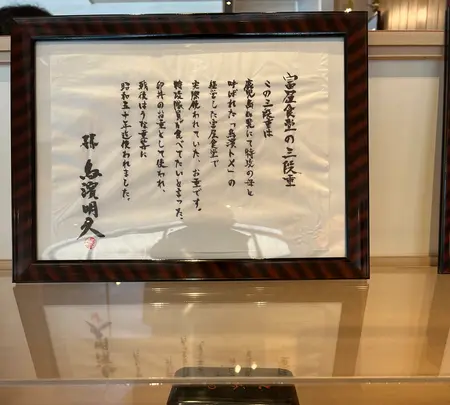 富屋食堂の三段重
この三段重は
鹿児島知覧にて特攻の母と
呼ばれた「鳥濱トメ」の
経営した富屋食堂で
実際使われていた、お重です。
特攻隊員が食べてたいと言った、
卵丼のお重として使われ、
戦後はうな重等に
昭和五十年迄使われました。
孫 鳥濱明久